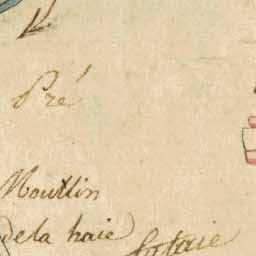 Pré
Moullin
de la haie
futaie